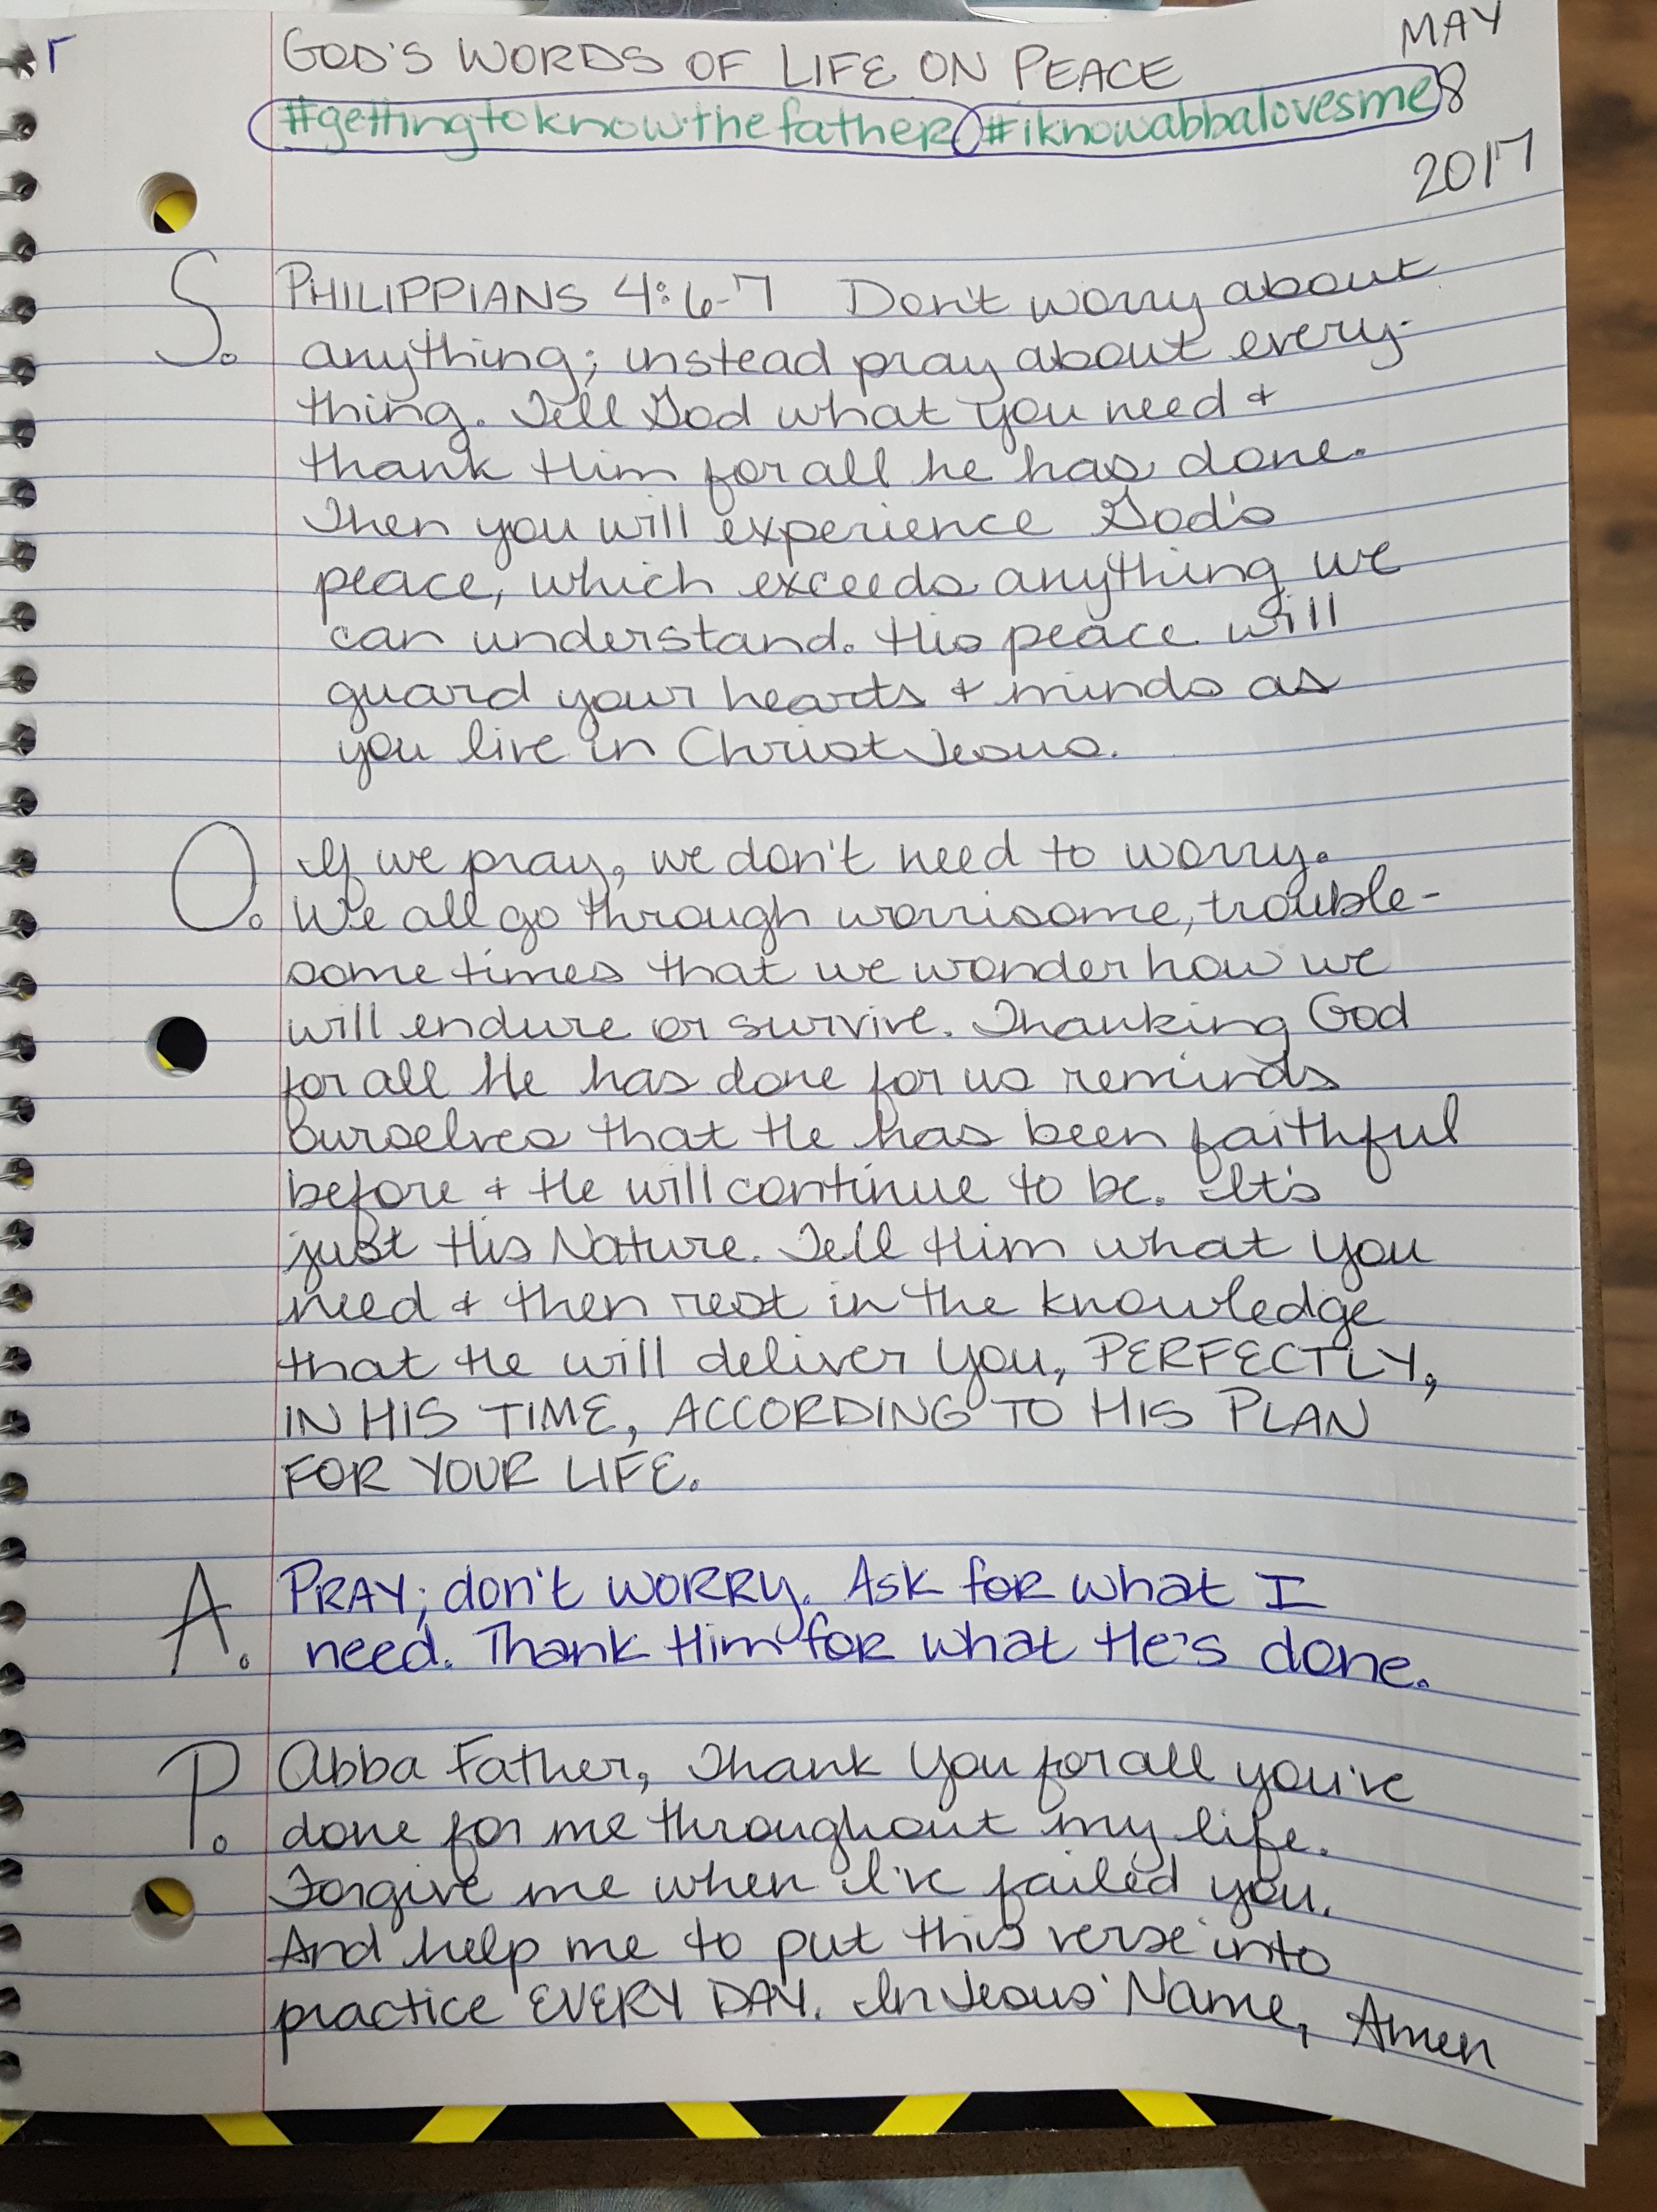 GOD'S WORDS OF LIFE ON PEACE
MAY
8
2017
#gettingtoknowthefather #iknowabbalovesme
S. PHILIPPIANS 4:6-7 Don't worry about
anything; instead pray about every-
thing. Tell God what you need +
thank Him for all he has done.
Then you will experience God's
peace, which exceeds anything we
can understand. His peace will
guard your hearts + minds as
you live in Christ Jesus.
O. If we pray, we don't need to worry.
We all go through worrisome, trouble-
some times that we wonder how we
will endure or survive. Thanking God
for all He has done for us reminds
ourselves that He has been faithful
before + He will continue to be. It's
just His Nature. Tell Him what you
need + then rest in the knowledge
that He will deliver you, PERFECTLY,
IN HIS TIME, ACCORDING TO HIS PLAN
FOR YOUR LIFE.
A. PRAY; don't WORRY. Ask for what I
need. Thank Him for what He's done.
P. Abba Father, Thank You for all you've
done for me throughout my life.
Forgive me when I've failed you.
And help me to put this verse into
practice EVERY DAY. In Jesus' Name, Amen